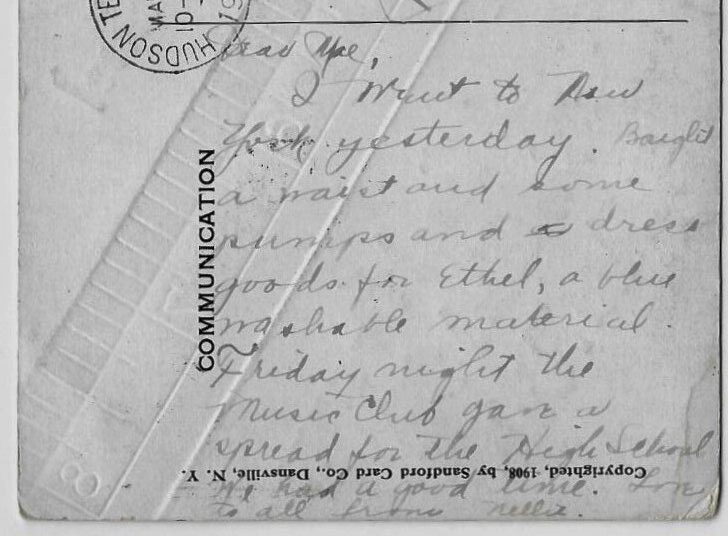 HUDSON TE
MA
10-
19
Dear Mae,
I went to New
York yesterday. Baught
a waist and some
pumps and dress
goods for Ethel, a blue
washable material.
Friday night the
Music Club gave a
spread for the High School
We had a good time. Love
to all from Nellie.
COMMUNICATION
Copyrighted, 1908, by Sandford Card Co., Dansville, N. Y.